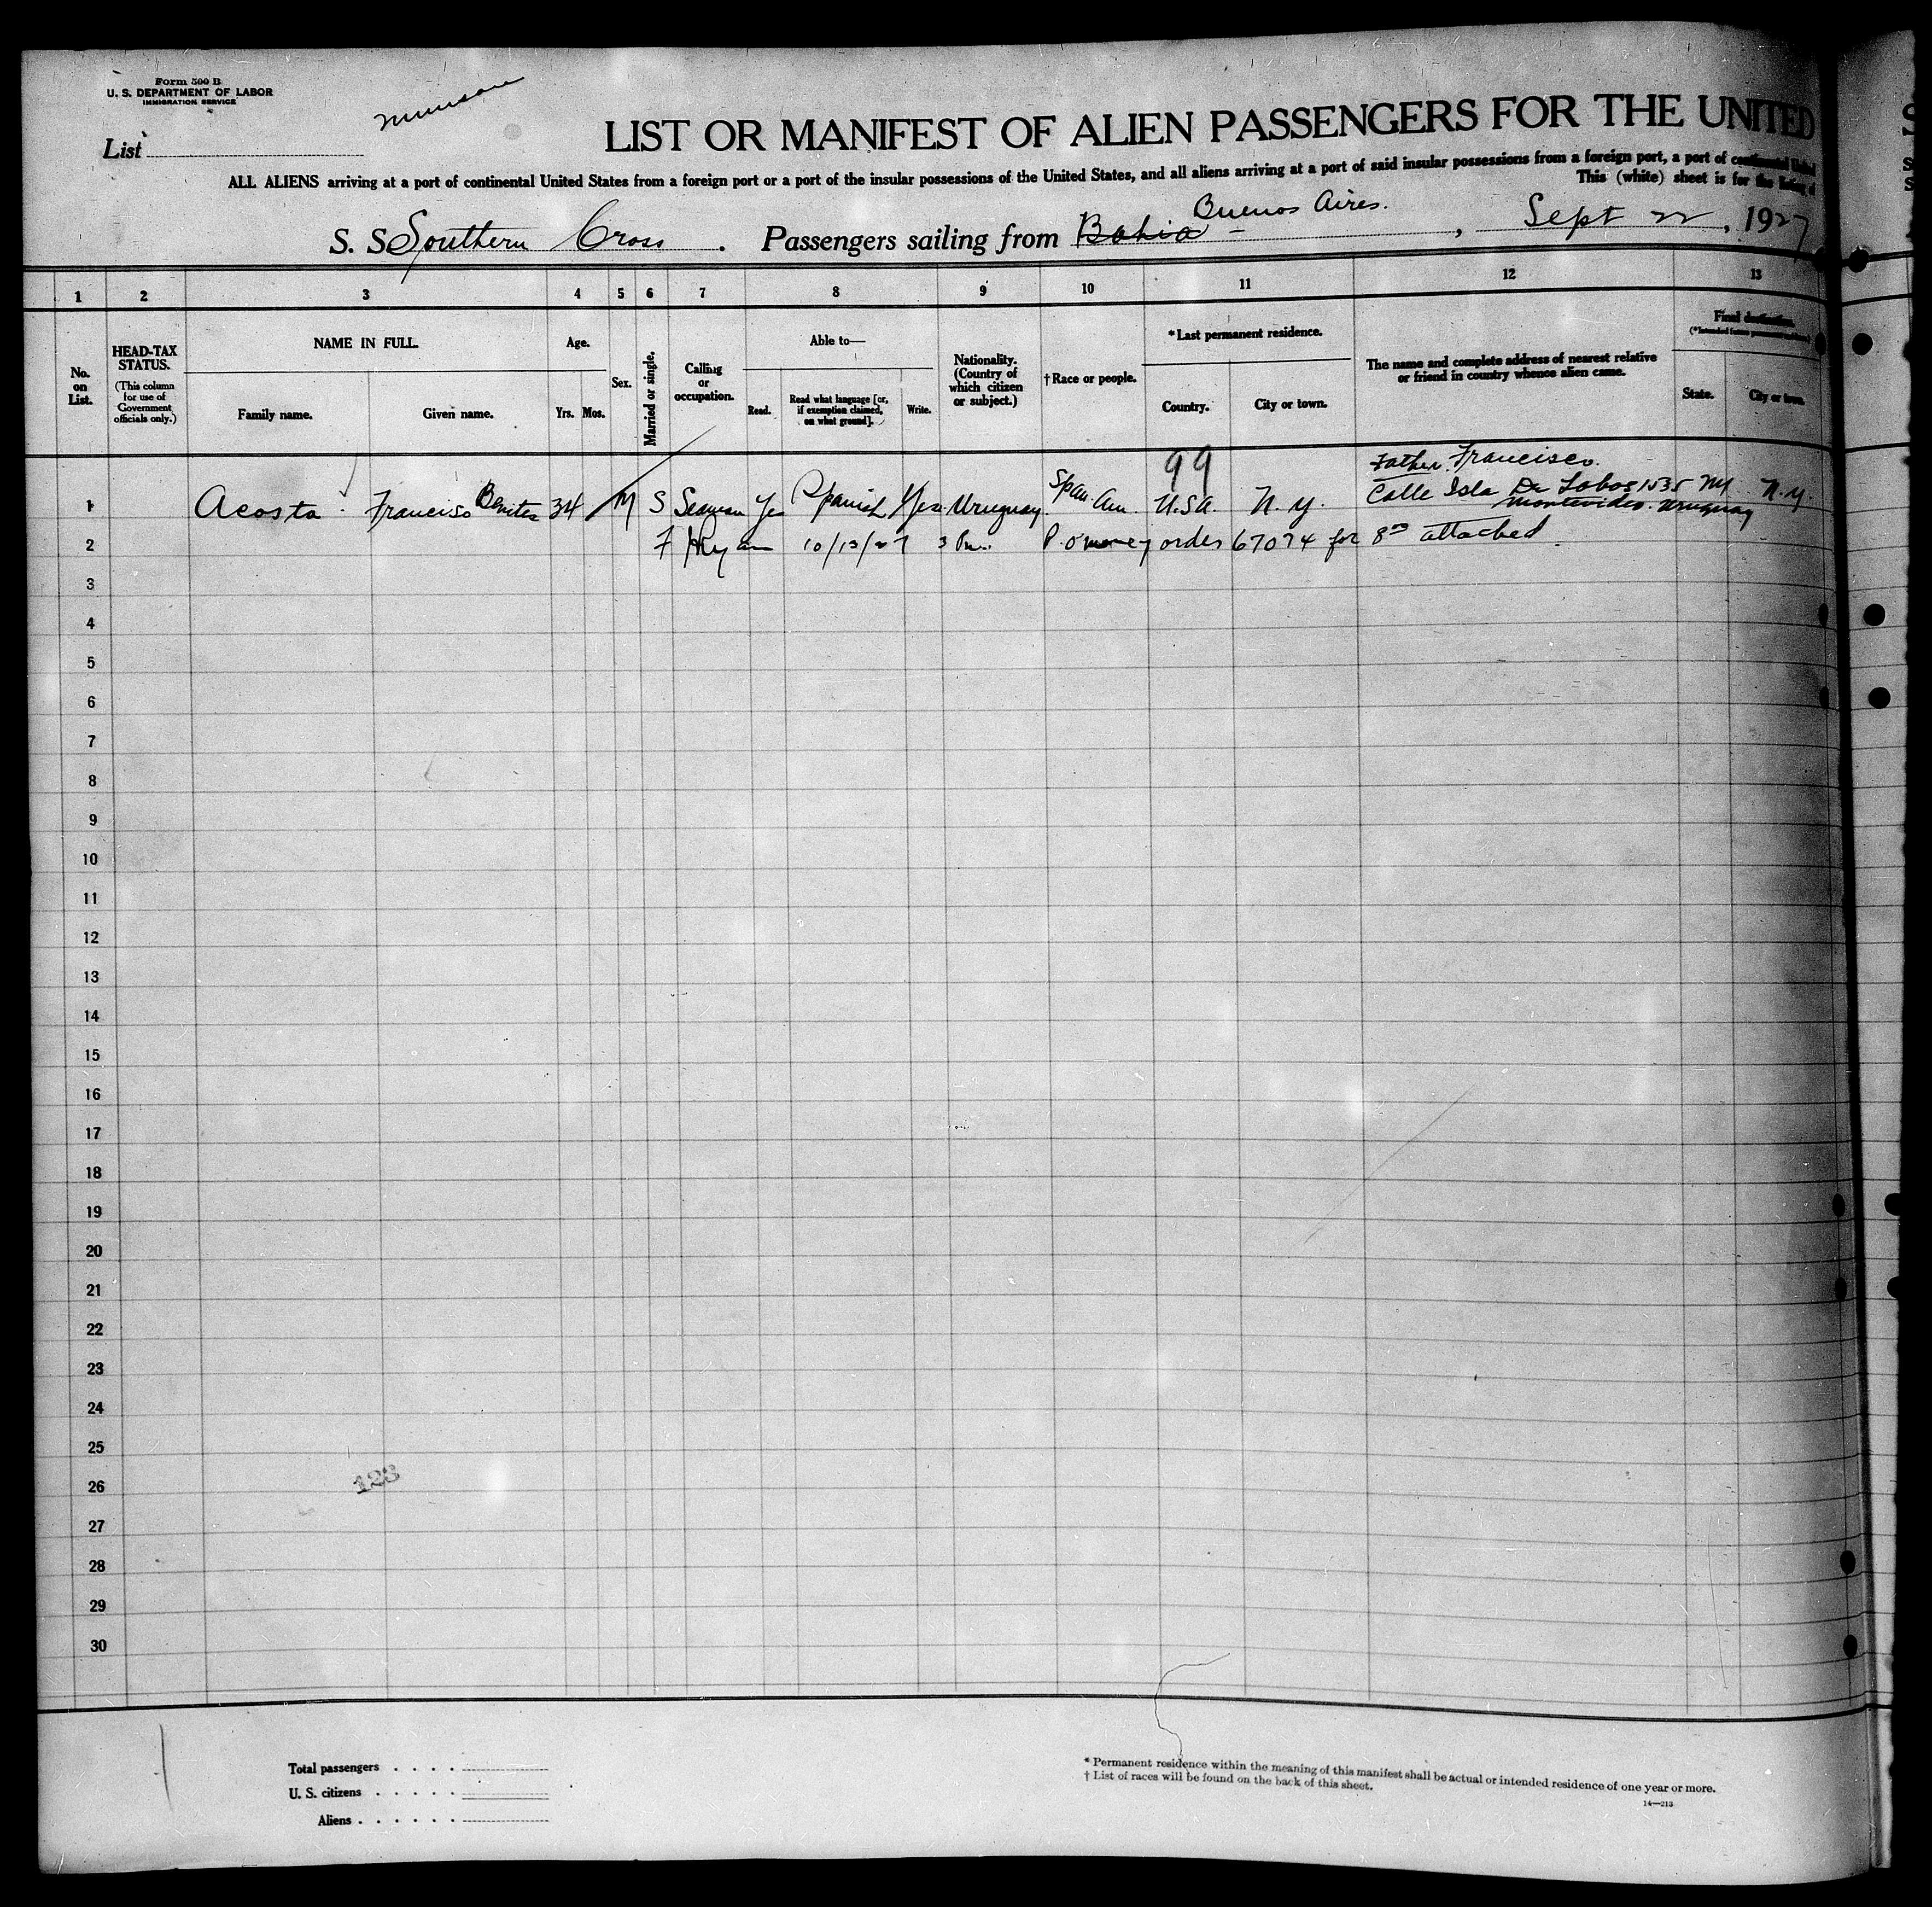 Form 500 B
U. S. DEPARTMENT OF LABOR
IMMIGRATION SERVICE
Munson
List
LIST OR MANIFEST OF ALIEN PASSENGERS FOR THE UNITED
ALL ALIENS arriving at a port of continental United States from a foreign port or a port of the insular possessions of the United States, and all aliens arriving at a port of said insular possessions from a foreign port, a port of continental United
This (white) sheet is for the listing of
Buenos Aires.
S. S. Southern Cross. Passengers sailing from Bahia, Sept 22, 1927
1 2 3 4 5 6 7 8 9 10 11 12 13
No. on List.
HEAD-TAX STATUS.
(This column for use of Government officials only.)
NAME IN FULL.
Family name. Given name.
Age.
Yrs. Mos.
Sex.
Married or single.
Calling or occupation.
Able to—
Read. Read what language [or, if exemption claimed, on what ground]. Write.
Nationality. (Country of which citizen or subject.)
†Race or people.
*Last permanent residence.
Country. City or town.
The name and complete address of nearest relative or friend in country whence alien came.
Final destination.
State. City or town.
99
Father Francisco.
1 Acosta Francisco Benites 34 M S Seaman Yes Spanish Yes Uruguay Span. Am. U.S.A. N.Y. Calle Isla De Lobos 1535 NY N.Y.
Montevideo. Uruguay
2 10/13/27 3 Pm. P.O money order 67074 for 8 attached
3
4
5
6
7
8
9
10
11
12
13
14
15
16
17
18
19
20
21
22
23
24
25
26
128
27
28
29
30
Total passengers . . . .
U. S. citizens . . . . .
Aliens . . . . . .
* Permanent residence within the meaning of this manifest shall be actual or intended residence of one year or more.
† List of races will be found on the back of this sheet.
14—213